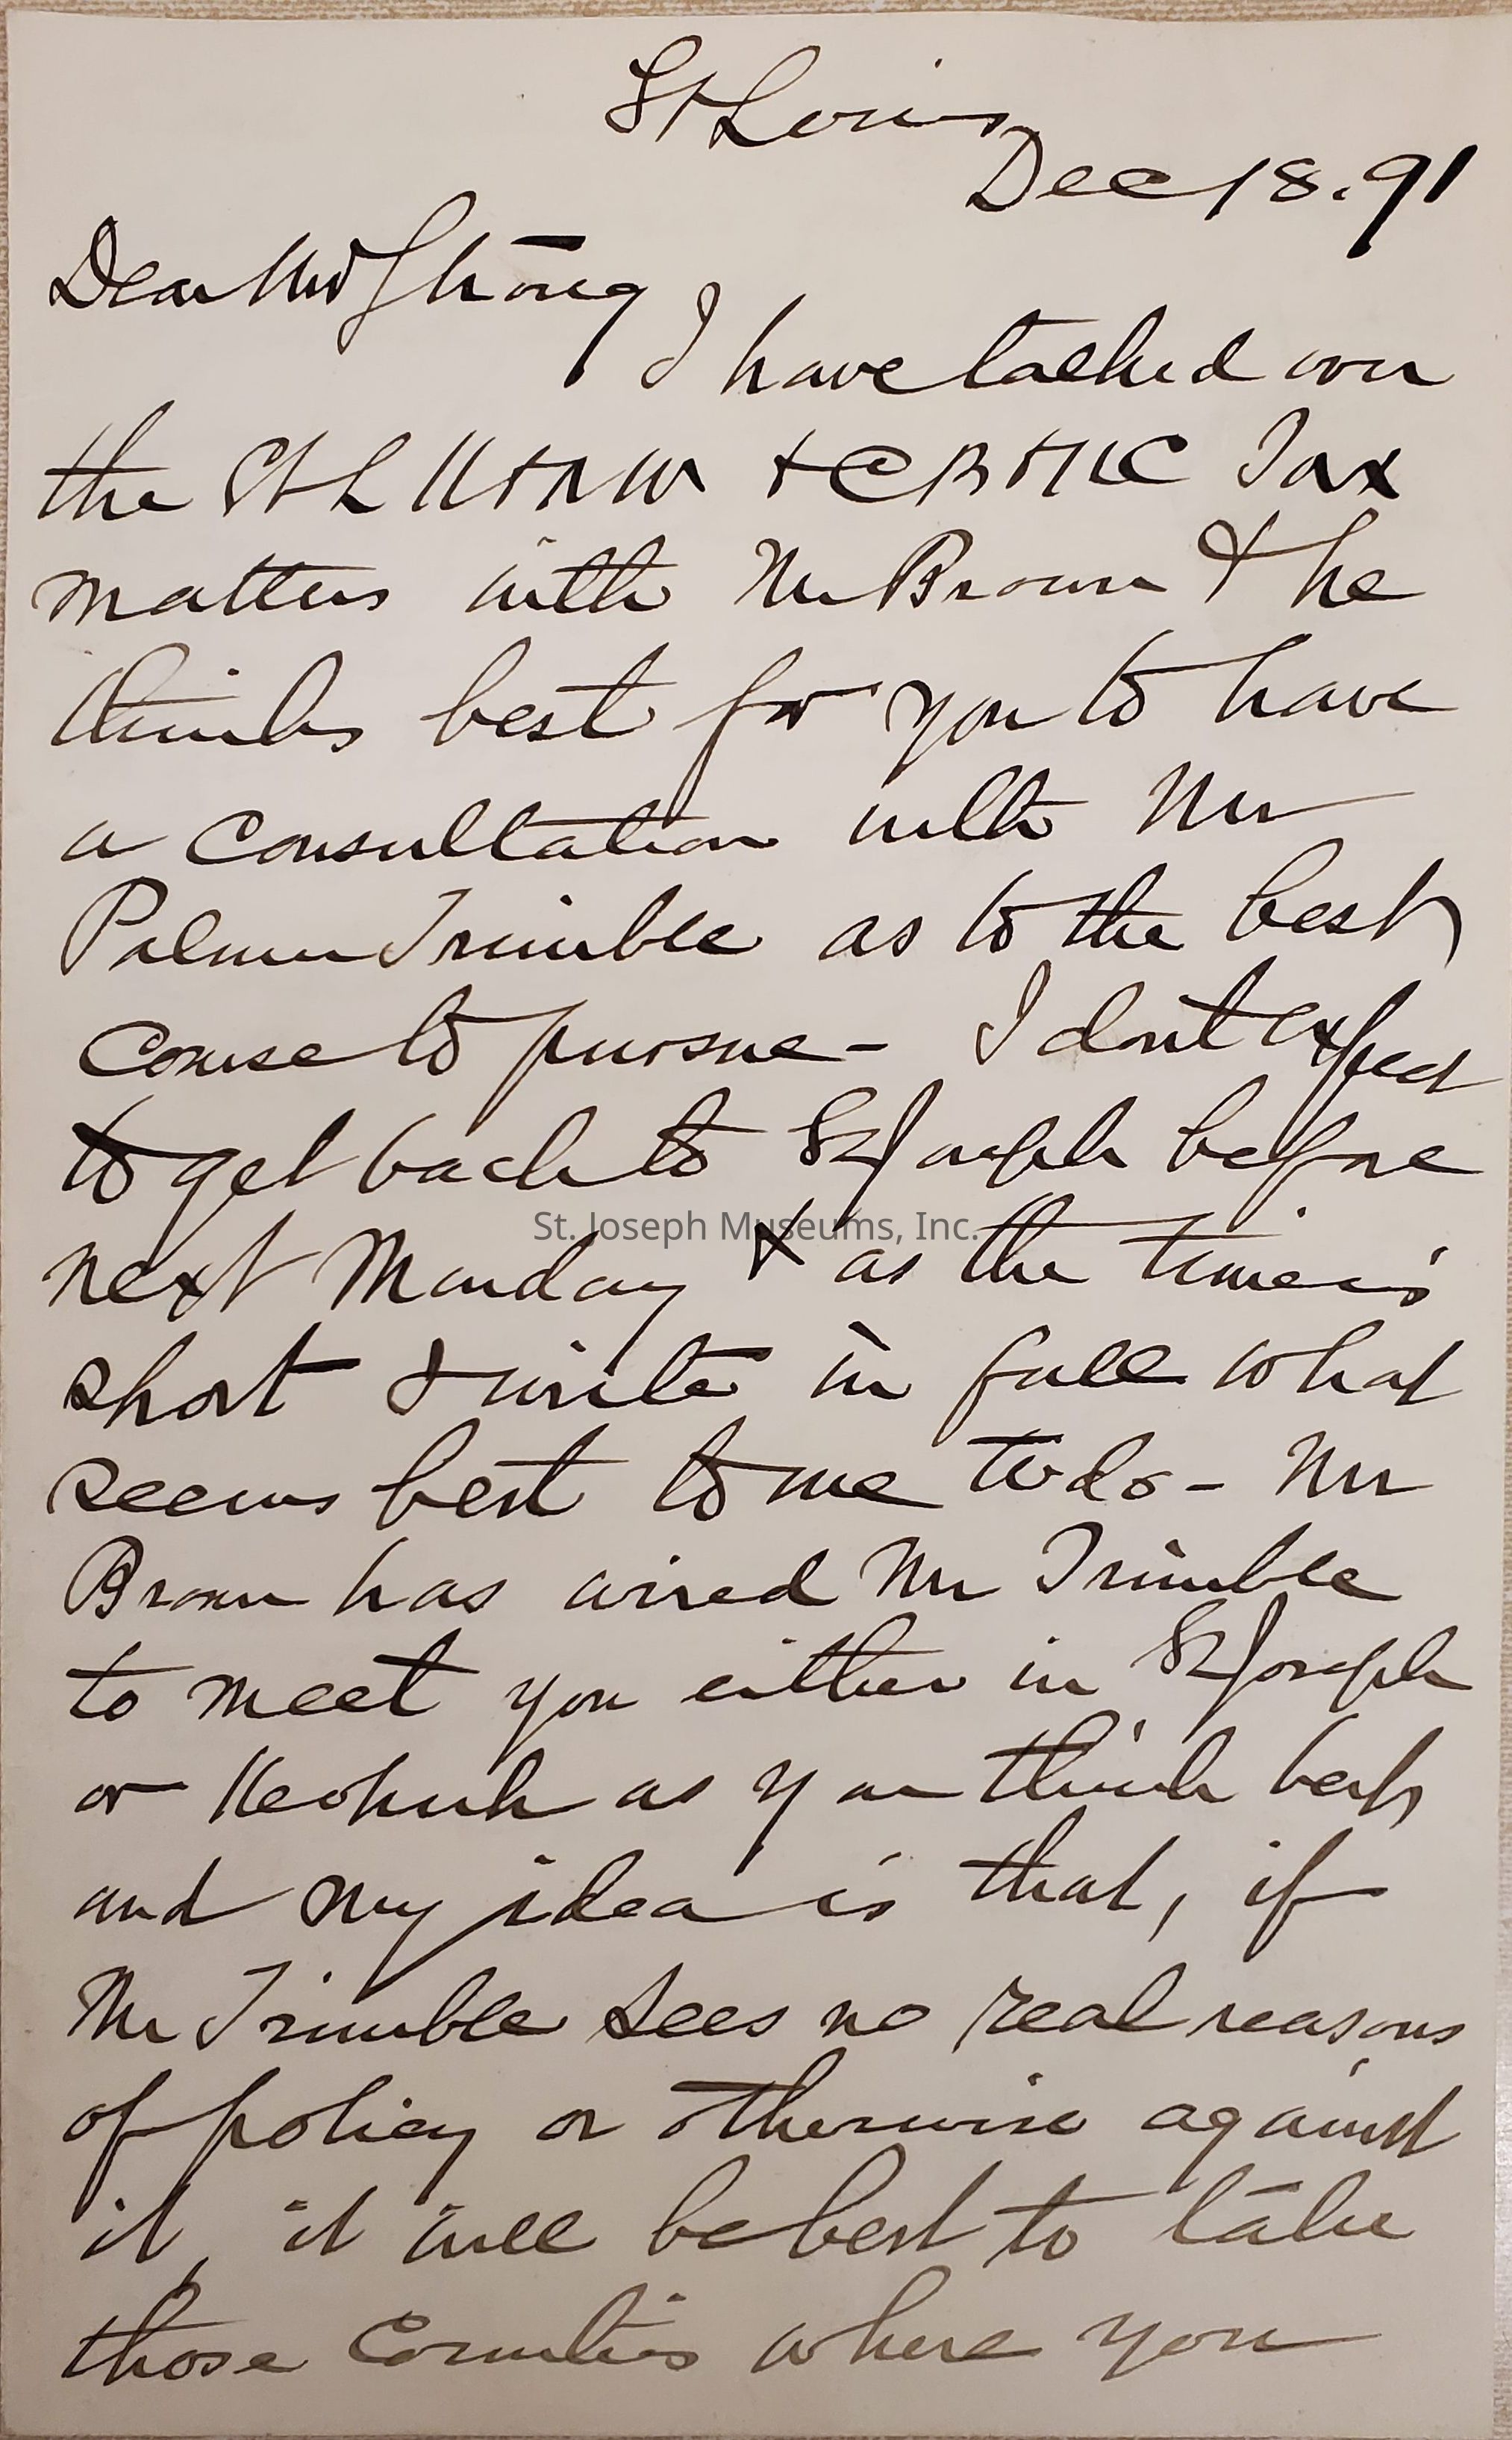 St Louis
Dec 18. 91
Dear Mr Strong
I have talked over
the St L K & N W & C B & K C Tax
matters with Mr Brown & he
thinks best for you to have
a Consultation with Mr
Palmer Trimble as to the best
Course to pursue - I don't expect
to get back to St Joseph before
St. Joseph Museums, Inc.
next Monday & as the time is
short I write in full what
seems best to me to do - Mr
Brown has wired Mr Trimble
to meet you either in St Joseph
or Keokuk as you think best
and my idea is that, if
Mr Trimble sees no real reasons
of policy or otherwise against
it, it will be best to take
those Counties where you